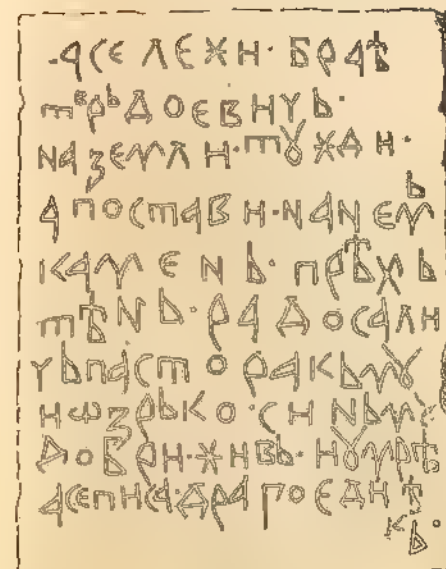 ·асе лежи· браѣ
тврьдоевичь·
на земли· тꙋжди·
а постави· на немь
камень· прѣхь
тѣнь· радосали
чь пасторакьмꙋ
и ѡзрько· синьмꙋ
добри· живь· иꙋмрѣ·
асе писа· драгоедиѣ
кь·